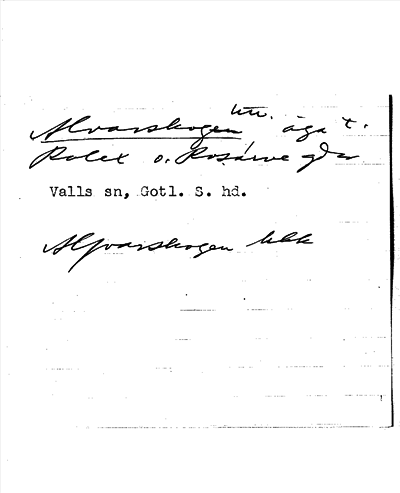 Alvarskogen utm. äga t.
Rolex o. Rosarve gdr
Valls sn, Gotl. S. hd.
Alfvarskogen